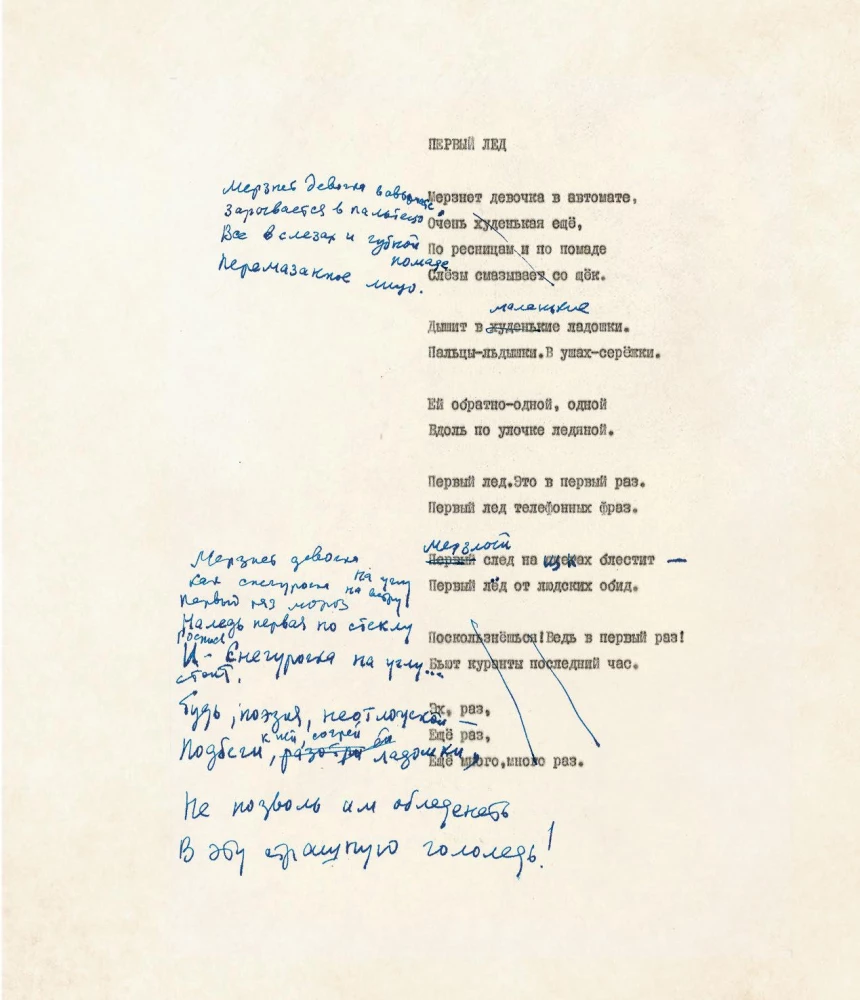 ПЕРВЫЙ ЛЕД
Мерзнет девочка в автомате
зарывается в пальтецо.
Все в слезах и губной
помаде
Перемазанное лицо.
Мерзнет девочка в автомате,
Очень худенькая ещё,
По ресницам и по помаде
Слёзы смазывает со щёк.
маленькие
Дышит в худенькие ладошки.
Пальцы-льдышки.В ушах-серёжки.
Ей обратно-одной, одной
Вдоль по улочке ледяной.
Первый лед.Это в первый раз.
Первый лед телефонных фраз.
мерзлый
Первый след на щеках блестит —
Первый лёд от людских обид.
Поскользнёшься!Ведь в первый раз!
Бьют куранты последний час.
Эх, раз,
Ещё раз,
Ещё много,много раз.
Мерзнет девочка
как снегурочка на углу
Первый раз мороз
Наледь первая по стеклу
И - Снегурочка на углу...
стоит.
Будь, поэзия, неотлучной —
к ней, согрей
Подбеги, разотри ладошки,
Не позволь им обледенеть
В эту страшную гололедь!